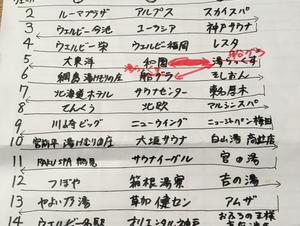 2 ルーマプラザ アルプス スカイスパ
3 ウェルビー今池 ユーラシア 神戸サウナ
4 ウェルビー栄 ウェルビー福岡 レスタ
船グラ
5 大東洋 湯らっくす
湯らっくす
6 綱島 湯けむりの庄 船グラ
7 北海道ホテル サウナセンター 東名厚木
8 てんくう 北欧 マルシンスパ
9 川崎ビッグ ニューウイング ニュージャパン梅田
10 宮前平 湯けむりの庄 大垣サウナ 白山湯 高辻店
11 RAKU SPA 鶴見 サウナイーグル 宮の湯
12 つぼや 箱根湯寮 吉の湯
13 やよい乃湯 草加健セン アムザ
14 ウェルビー名駅 オリエンタル神戸 おふろの王様